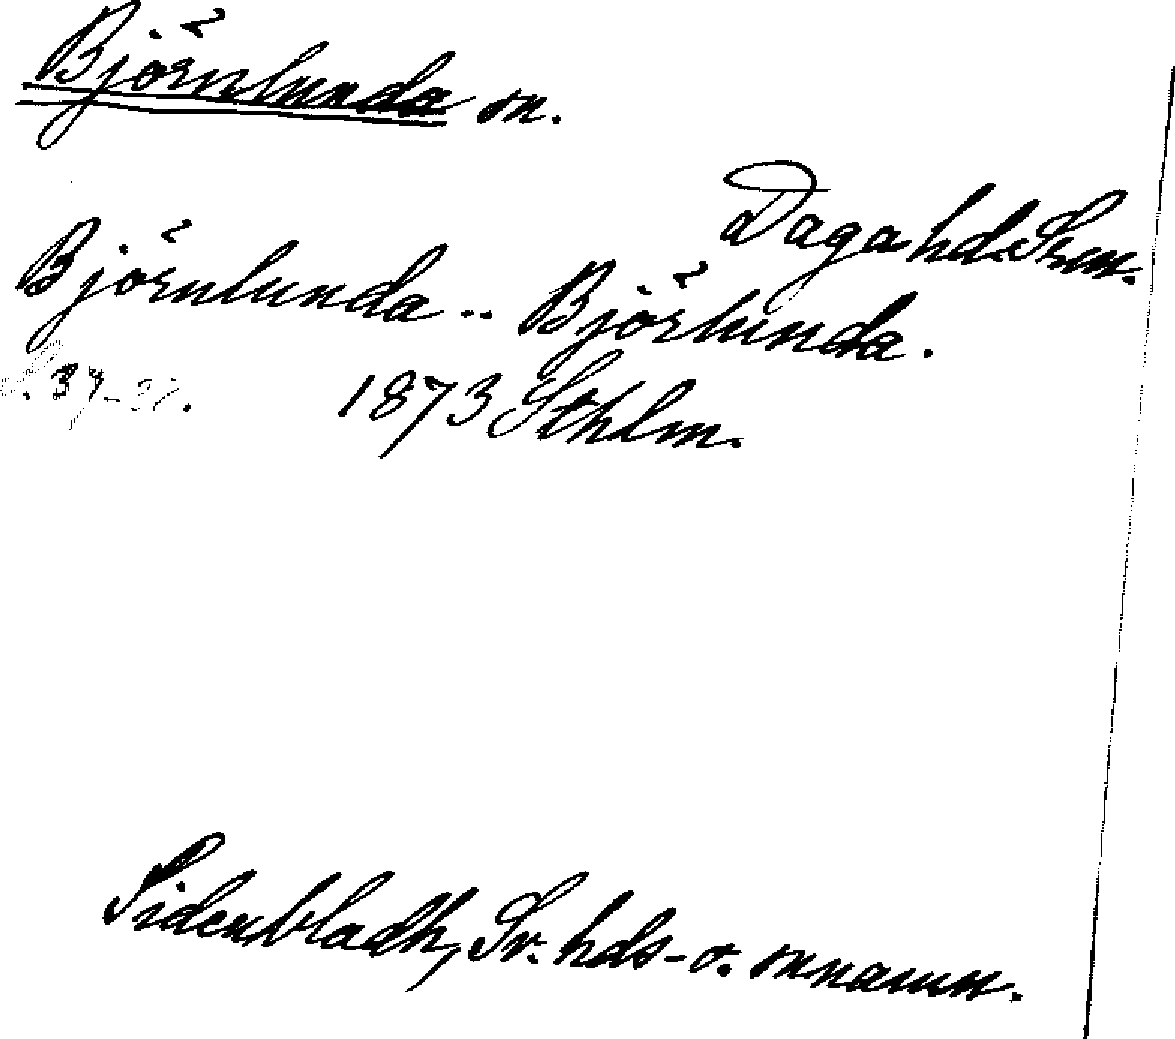 Björnlunda sn.
Daga hd. Srm.
Björnlunda .. Björlunda.
1873 Sthlm.
Sidenbladh, Sv. hds- o. snnamn.